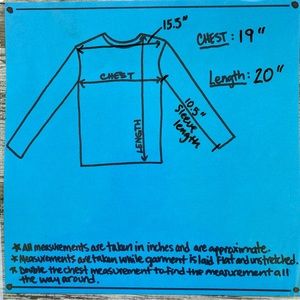 15.5"
CHEST: 19"
CHEST
Length: 20"
LENGTH
10.5"
Sleeve
Length
* All measurements are taken in inches and are approximate.
* Measurements are taken while garment is laid flat and unstretched.
* Double the chest measurement to find the measurement all
the way around.